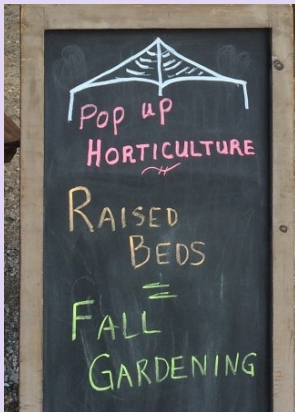 Pop up
HORTICULTURE
RAISED
BEDS
=
FALL
GARDENING